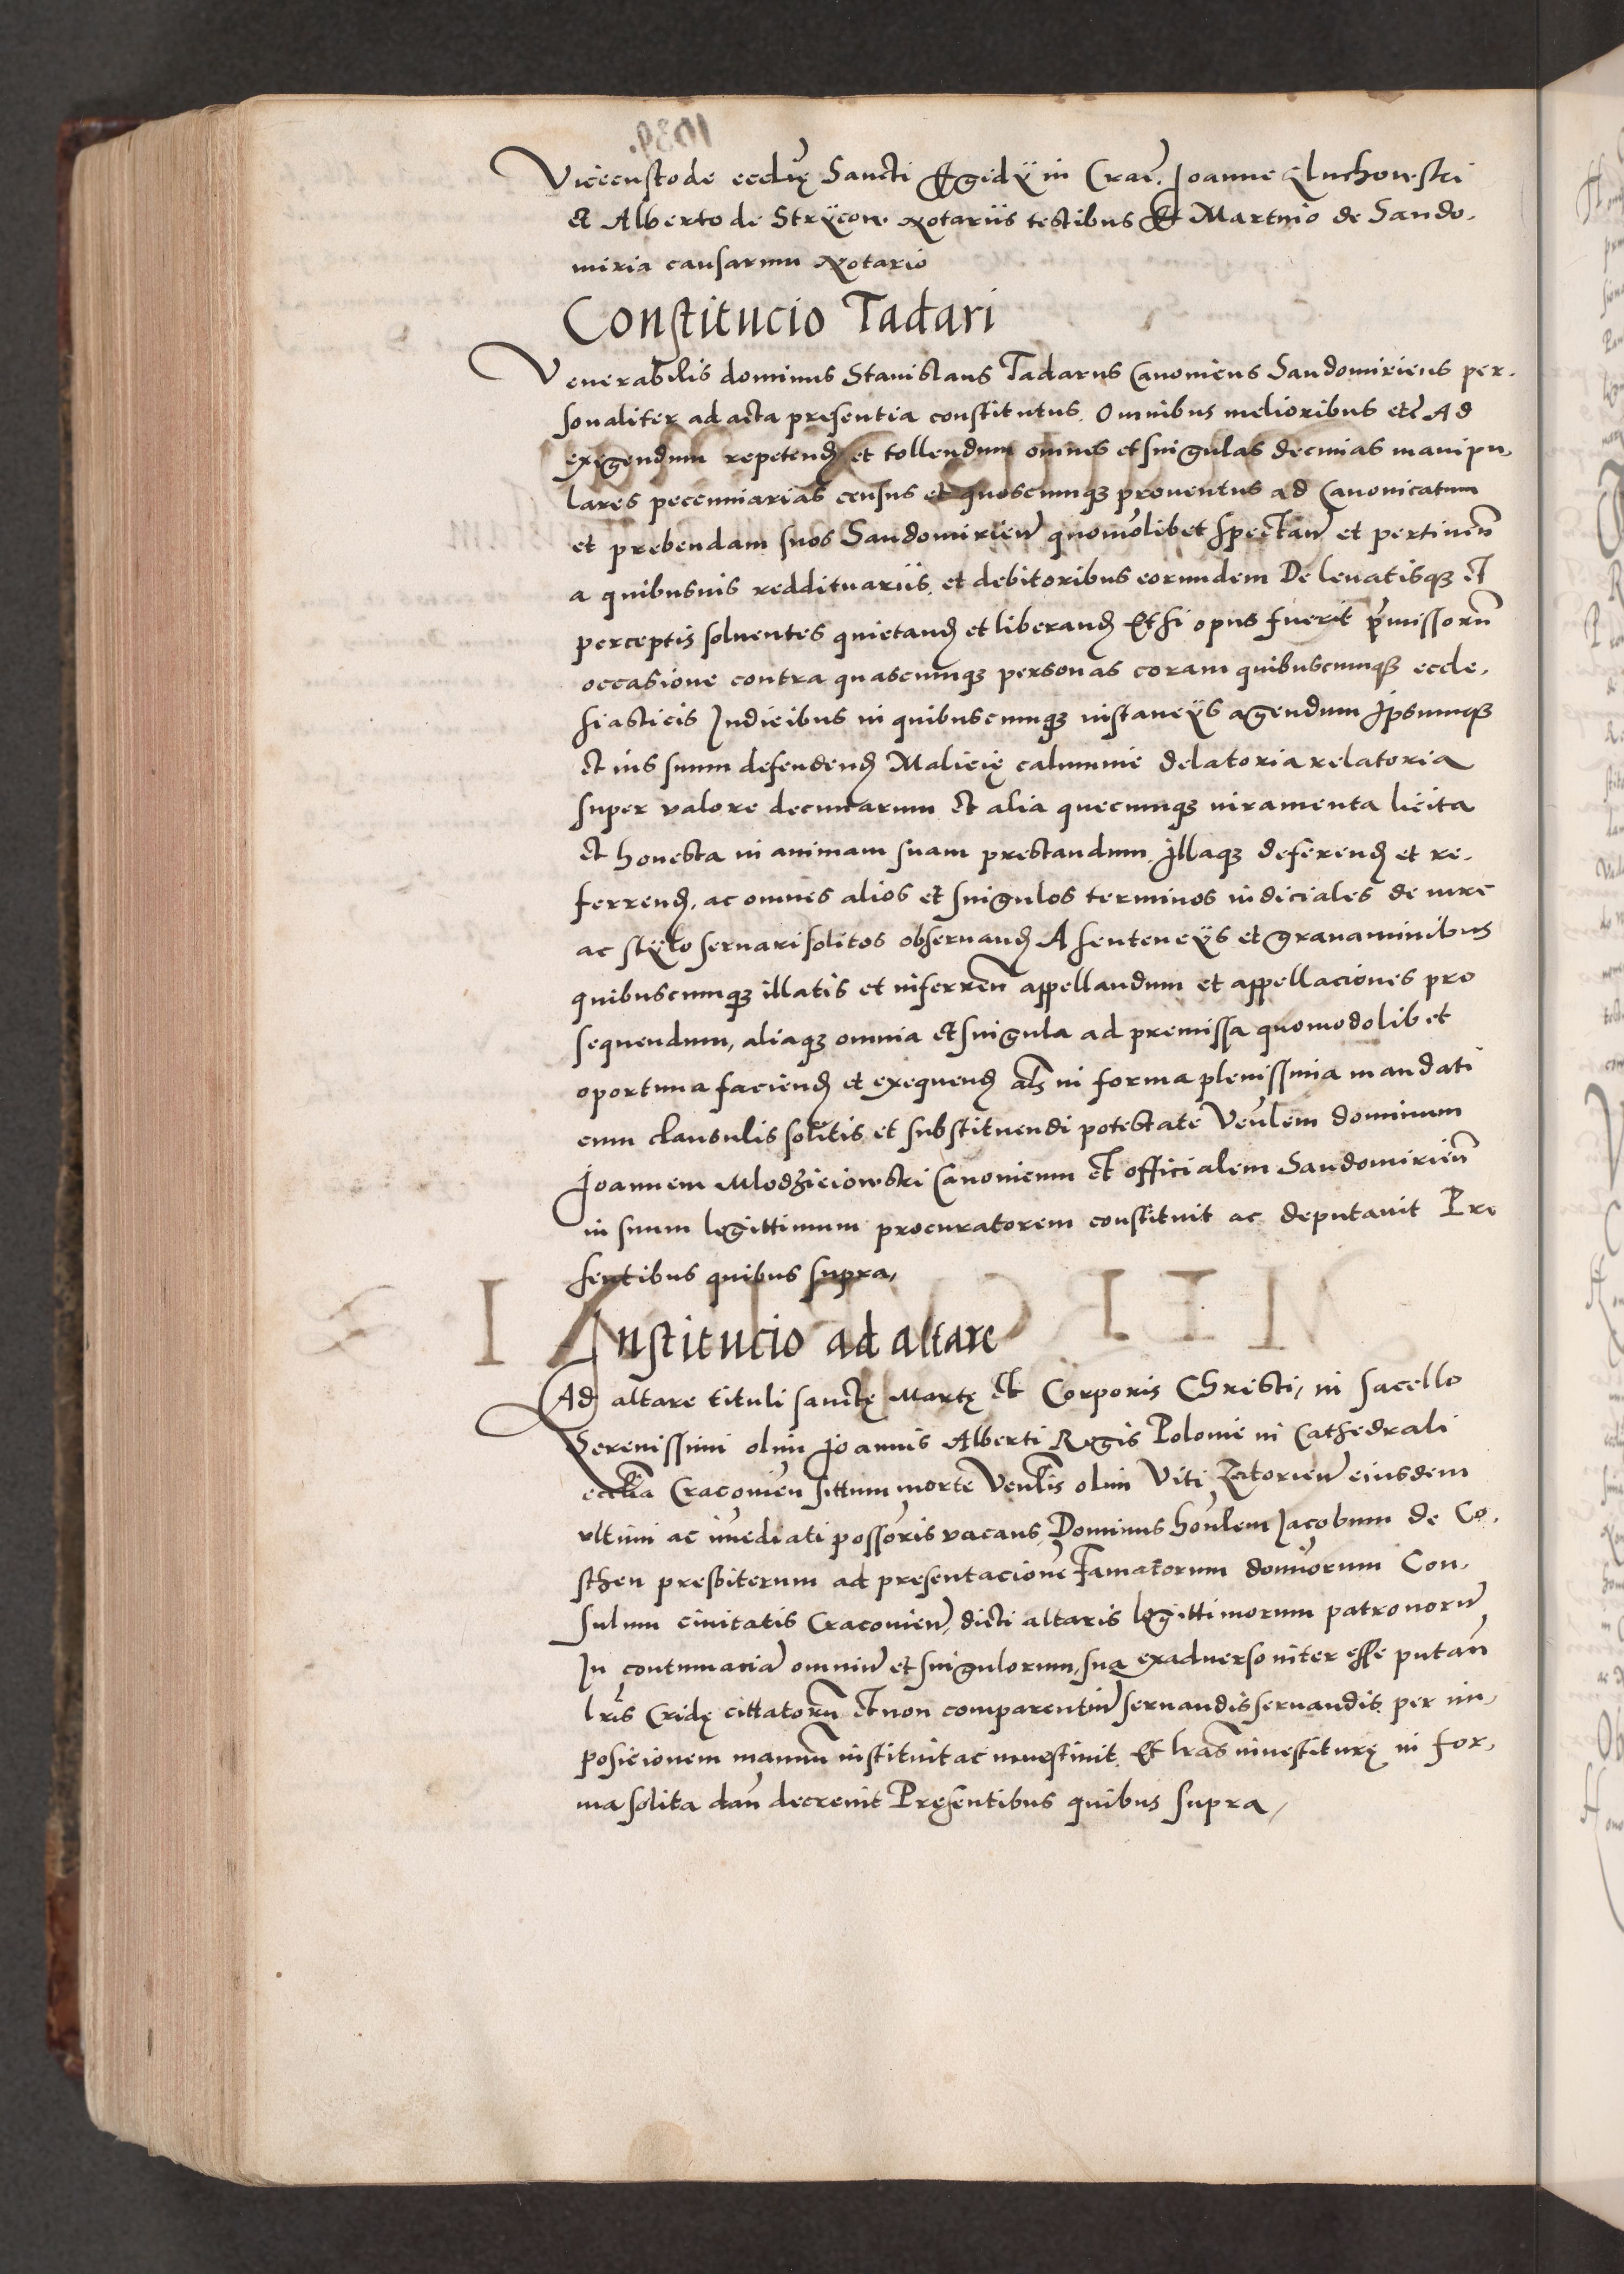 Vicecustode ecclię Sancti Egidÿ in Crac̃. Joanne Kluchowski
et Alberto de Strÿcow. Notariis testibus Et Martino de Sando,
miria causarum Notario
Constitucio Tadari
Venerabilis dominus Stanislaus Tadarus Canonicus Sandomiriens per,
sonaliter ad acta presentia constitutus. Omnibus melioribus etc̃ Ad
exigendum repetend et tollendum omnes et singulas decimas manipu,
lares pecunniarias census et quoscumqȝ prouentus ad Canonicatum
et prebendam suos Sandomirien̄ quomõlibet spectan̄ et pertinen̄
a quibusuis reddituariis. et debitoribus eorundem De leuatisqȝ et
perceptis soluentes quietand et liberand Et si opus fuerit p̃missorū
occasione contra quascumqȝ personas coram quibuscumqȝ eccle,
siasticis Judicibus in quibuscumqȝ instancÿs agendum Ipsumqȝ
et ius suum defendend Malicię calumnie delatoria relatoria
super valore decimarum et alia quecumqȝ iuramenta licita
et honesta in animam suam prestandum. Illaqȝ deferend et re,
ferrend, ac omnes alios et singulos terminos iudiciales de iure
ac stÿlo seruari solitos obseruand A sentencÿs et grauaminibus
quibuscumqȝ illatis et inferren̄ appellandum et appellaciones pro
sequendum, aliaqȝ omnia et singula ad premissa quomodolibet
oportuna faciend et exequend als̃ in forma plenissima mandati
cum clausulis solitis et substituendi potestate Ven̄lem dominum
Joannem Mlodzieiowski Canonicum et officialem Sandomirien̄
in suum legittimum procuratorem constituit ac deputauit Pre
sentibus quibus supra,
Institucio ad altare
Ad altare tituli sanctę Martę et Corporis Christi, in sacello
Serenissimi olim Joannis Alberti Regis Polonie in Cathedrali
ecclia Cracouien̄ sittum morte Ven̄lis olim Viti Zatorien̄ eiusdem
vltimi ac im̃ediati possoris vacans, Dominus hon̄lem Jacobum de Co,
sthen presbiterum ad presentacionē Famatorum dominorum Con,
sulum ciuitatis Cracouien̄, dicti altaris legittimorum patronorū
In contumaciā omniū et singulorum, sua exaduerso inter esse putan̄
lrīs Cridę cittatorū et non comparentiū seruandis seruandis per im,
posicionem manuū instituit ac inuestiuit. Et lrās inuestiturę in for,
ma solita dan̄ decreuit Pręsentibus quibus supra,